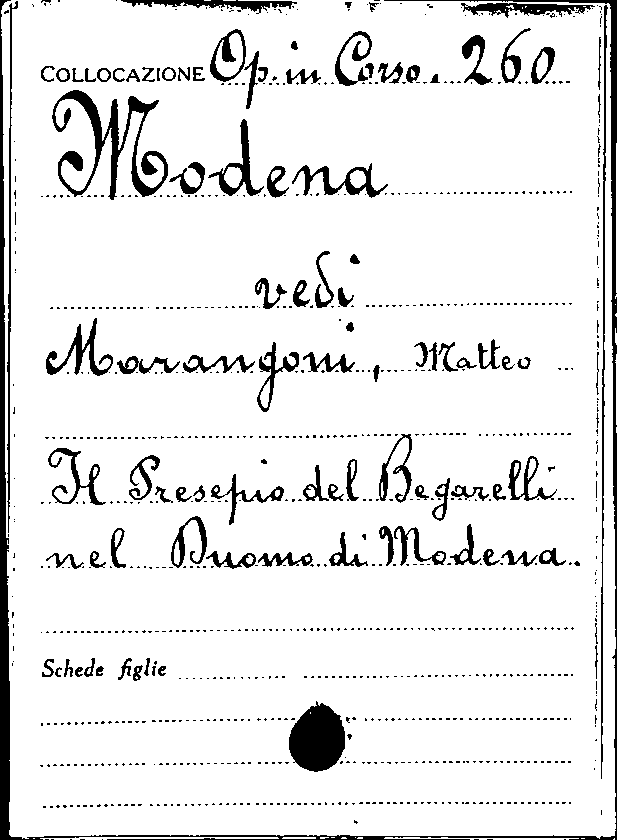 COLLOCAZIONE Op. in Corso. 260
Modena
vedi
Marangoni, Matteo
Il Presepio del Begarelli
nel Duomo di Modena.
Schede figlie